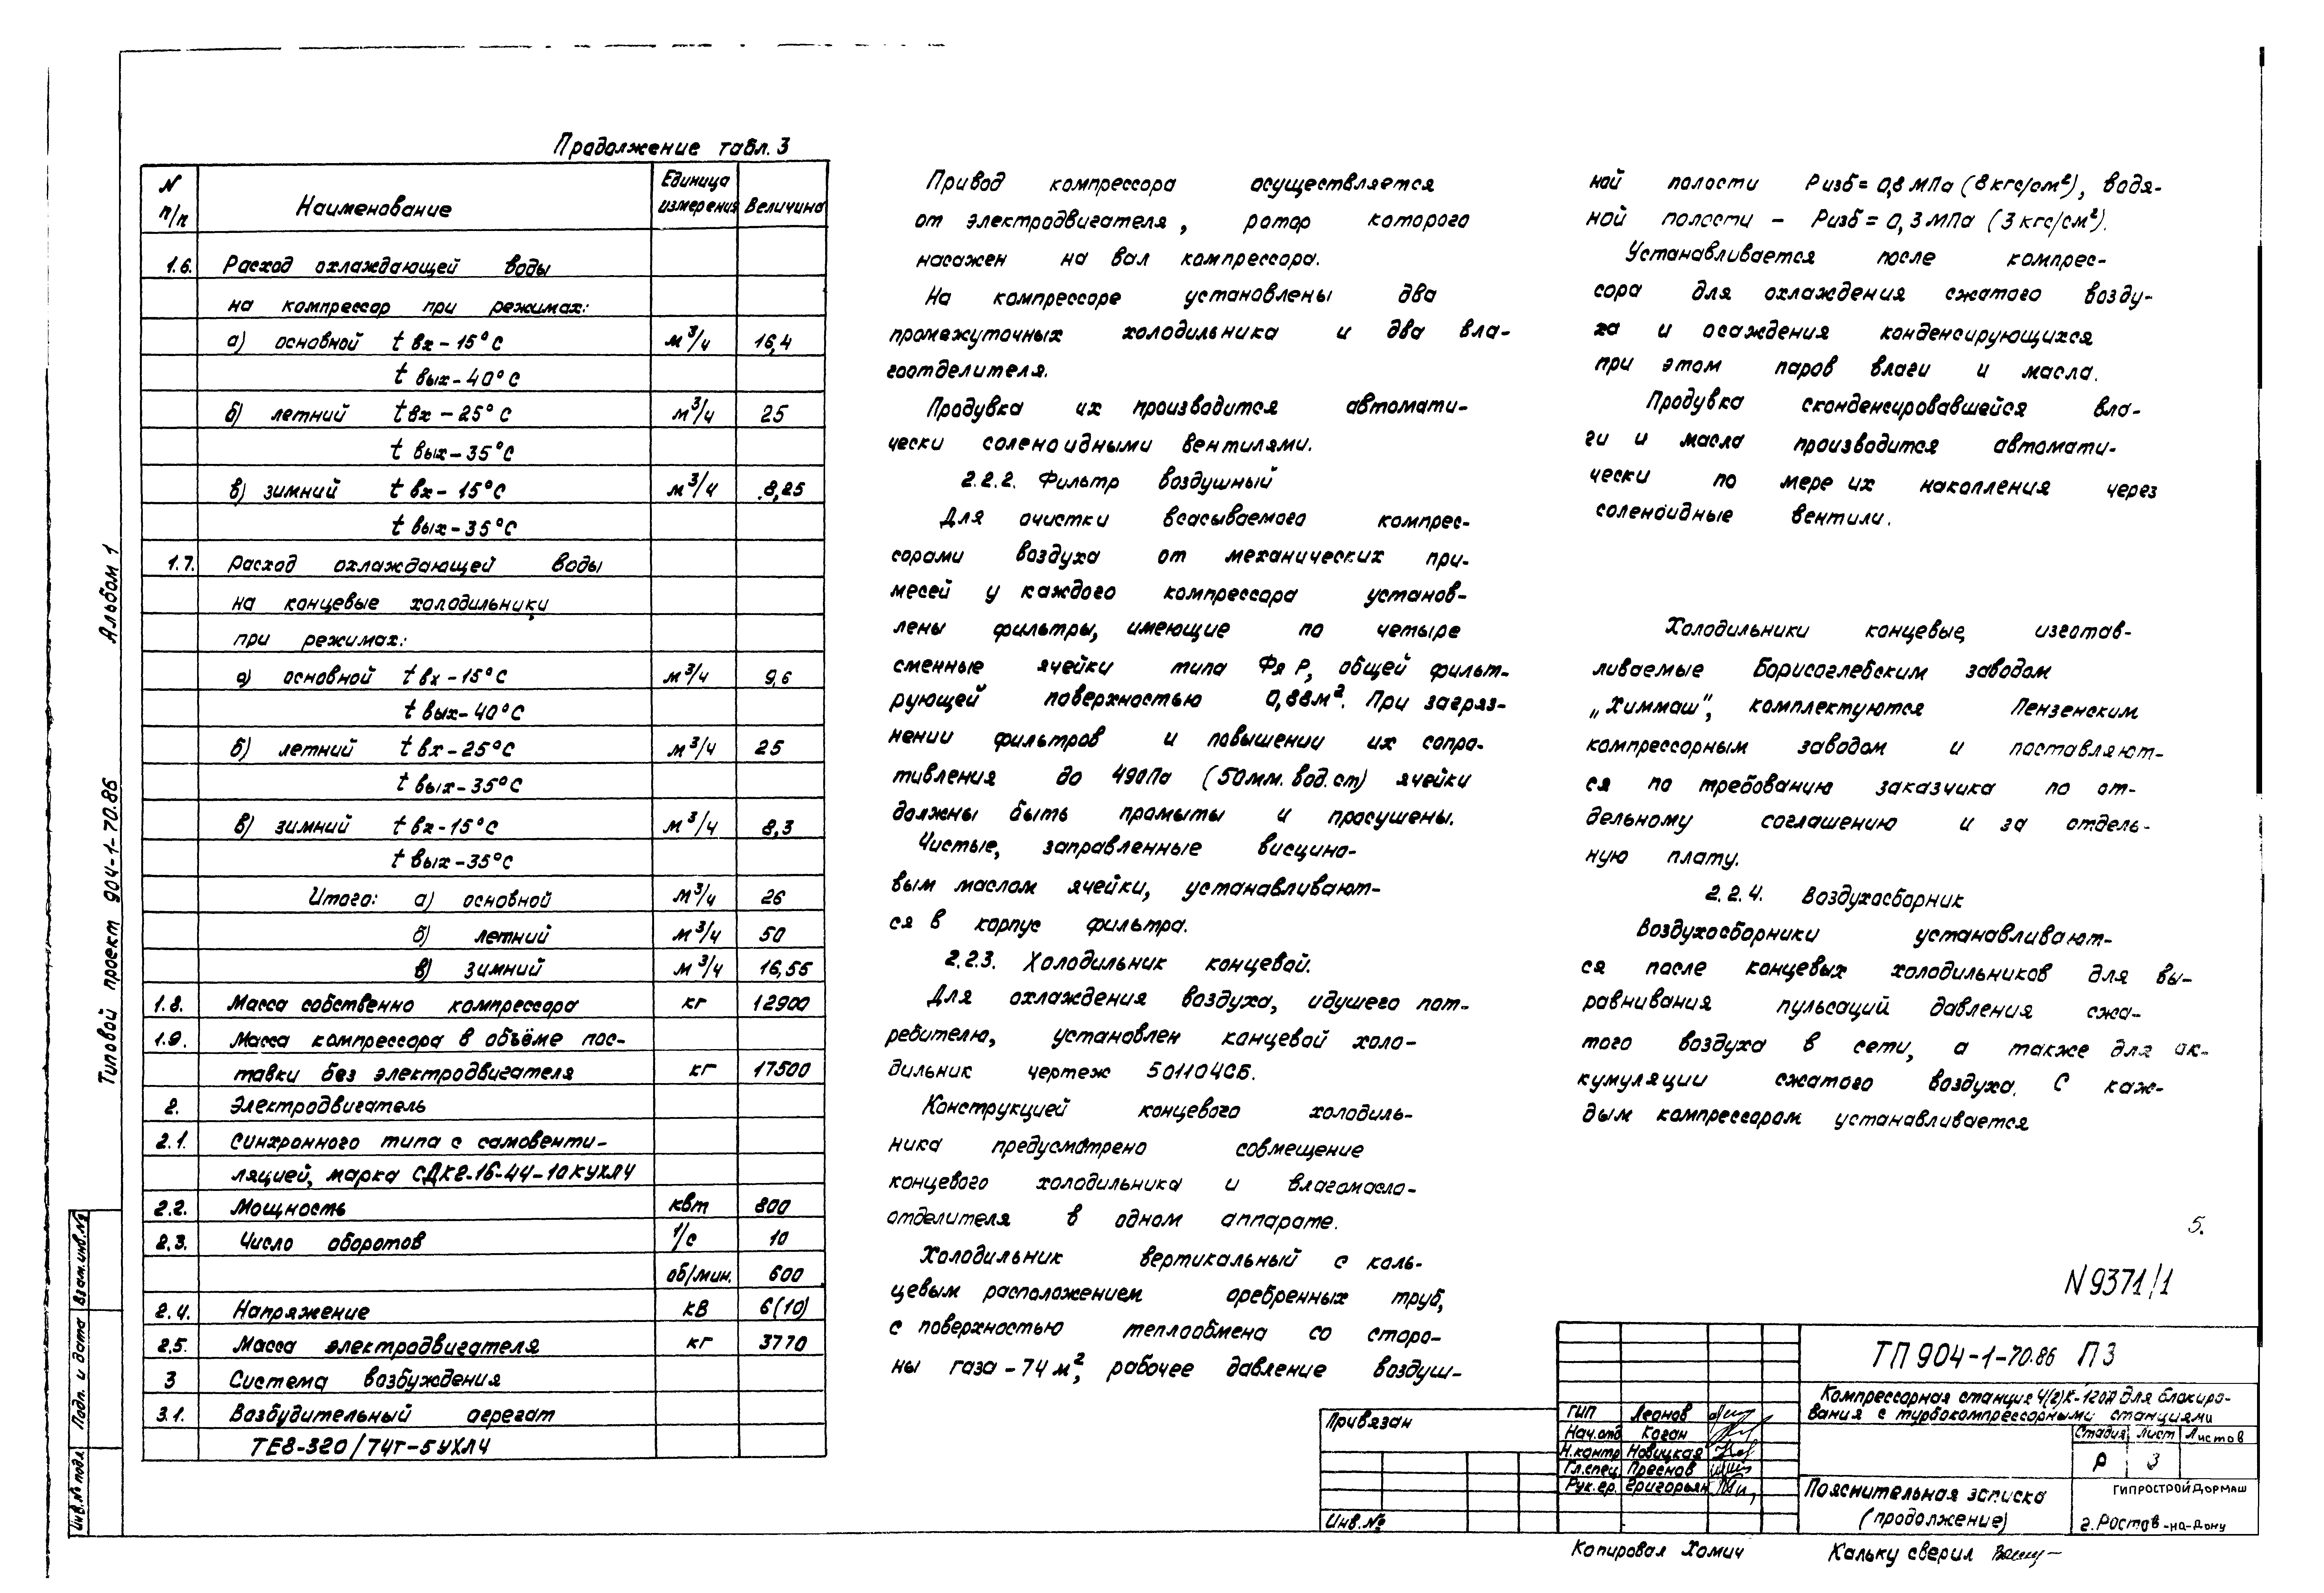 Продолжение табл. 3
N п/п Наименование Единица измерения Величина
1.6. Расход охлаждающей воды
на компрессор при режимах:
а) основной t вх - 15°С м³/ч 16,4
t вых - 40°С
б) летний t вх - 25°С м³/ч 25
t вых - 35°С
в) зимний t вх - 15°С м³/ч 8,25
t вых - 35°С
1.7. Расход охлаждающей воды
на концевые холодильники
при режимах:
а) основной t вх - 15°С м³/ч 9,6
t вых - 40°С
б) летний t вх - 25°С м³/ч 25
t вых - 35°С
в) зимний t вх - 15°С м³/ч 8,3
t вых - 35°С
Итого: а) основной м³/ч 26
б) летний м³/ч 50
в) зимний м³/ч 16,55
1.8. Масса собственно компрессора кг 12900
1.9. Масса компрессора в объёме пос-
тавки без электродвигателя кг 17500
2. Электродвигатель
2.1. Синхронного типа с самовенти-
ляцией, марка СДК2-16-44-10КУХЛ4
2.2. Мощность квт 800
2.3. Число оборотов 1/с 10
об/мин. 600
2.4. Напряжение кВ 6(10)
2.5. Масса электродвигателя кг 3770
3 Система возбуждения
3.1. Возбудительный агрегат
ТЕ8-320/74Т-5УХЛ4
Привод компрессора осуществляется
от электродвигателя, ротор которого
насажен на вал компрессора.
На компрессоре установлены два
промежуточных холодильника и два вла-
гоотделителя.
Продувка их производится автомати-
чески соленоидными вентилями.
2.2.2. Фильтр воздушный
Для очистки всасываемого компрес-
сорами воздуха от механических при-
месей у каждого компрессора установ-
лены фильтры, имеющие по четыре
сменные ячейки типа ФяР, общей фильт-
рующей поверхностью 0,88м². При загряз-
нении фильтров и повышении их сопро-
тивления до 490Па (50мм.вод.ст) ячейки
должны быть промыты и просушены.
Чистые, заправленные висцино-
вым маслом ячейки, устанавливают-
ся в корпус фильтра.
2.2.3. Холодильник концевой.
Для охлаждения воздуха, идушего пот-
ребителю, установлен концевой холо-
дильник чертеж 501104СБ.
Конструкцией концевого холодиль-
ника предусмотрено совмещение
концевого холодильника и влагомасло-
отделителя в одном аппарате.
Холодильник вертикальный с коль-
цевым расположением оребренных труб,
с поверхностью теплообмена со сторо-
ны газа - 74 м², рабочее давление воздуш-
ной полости Ризб = 0,8 мПа (8 кгс/см²), водя-
ной полости - Ризб = 0,3 мПа (3 кгс/см²).
Устанавливается после компрес-
сора для охлаждения сжатого возду-
ха и осаждения конденсирующихся
при этом паров влаги и масла.
Продувка сконденсировавшейся вла-
ги и масла производится автомати-
чески по мере их накопления через
соленоидные вентили.
Холодильники концевые, изготав-
ливаемые Борисоглебским заводом
„Химмаш", комплектуются Пензенским
компрессорным заводом и поставляют-
ся по требованию заказчика по от-
дельному соглашению и за отдель-
ную плату.
2.2.4. Воздухосборник
Воздухосборники устанавливают-
ся после концевых холодильников для вы-
равнивания пульсаций давления сжа-
того воздуха в сети, а также для ак-
кумуляции сжатого воздуха. С каж-
дым компрессором устанавливается
5.
N 9371/1
ТП 904-1-70.86 ПЗ
Компрессорная станция 4(2)К-120А для блокиро-
вания с турбокомпрессорными станциями
Стадия Лист Листов
Р 3
Пояснительная записка
(продолжение)
ГИПРОСТРОЙДОРМАШ
г. Ростов-на-Дону
ГИП Леонов
Нач.отд Коган
Н.контр Новицкая
Гл.спец. Преснов
Рук.гр. Григорьян
Привязан
Инв.№
Копировал Хомич
Кальку сверил
Типовой проект 904-1-70.86 Альбом 1
Инв.№ подл. Подп. и дата Взам.инв.№